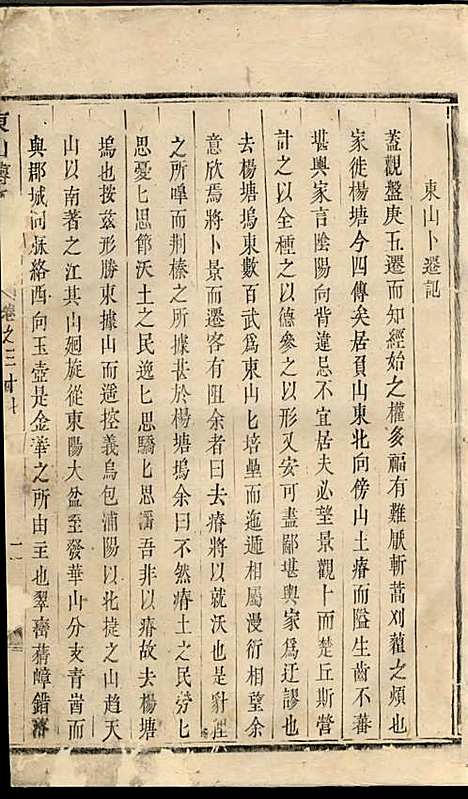 東山卜遷記
蓋觀盤庚五遷而知經始之權多福有難厭斬蒿刈藋之煩也
家徙楊塘今四傳矣居負山東北向傍山土瘠而隘生齒不蕃
堪輿家言陰陽向背違忌不宜居夫必望景觀卜而楚丘斯營
計之以全種之以德參之以形又安可盡鄙堪輿家爲迂謬也
去楊塘塢東數百武爲東山匕培壘而迤逦相屬漫衍相望余
意欣焉將卜景而遷客有阻余者曰去瘠將以就沃也是豺狸
之所嘷而荆榛之所據甚於楊塘塢余曰不然瘠土之民勞匕
思憂匕思節沃土之民逸匕思驕匕思譎吾非以瘠故去楊塘
塢也按兹形勝東據山而遥控義烏包浦陽以北揵之山趋天
山以南著之江其山廻旋從東陽大盆至發華山分支青峝而
與郡城同脉絡西向玉壺是金華之所由主也翠巒蒨嶂錯落
東山
卷之三十七